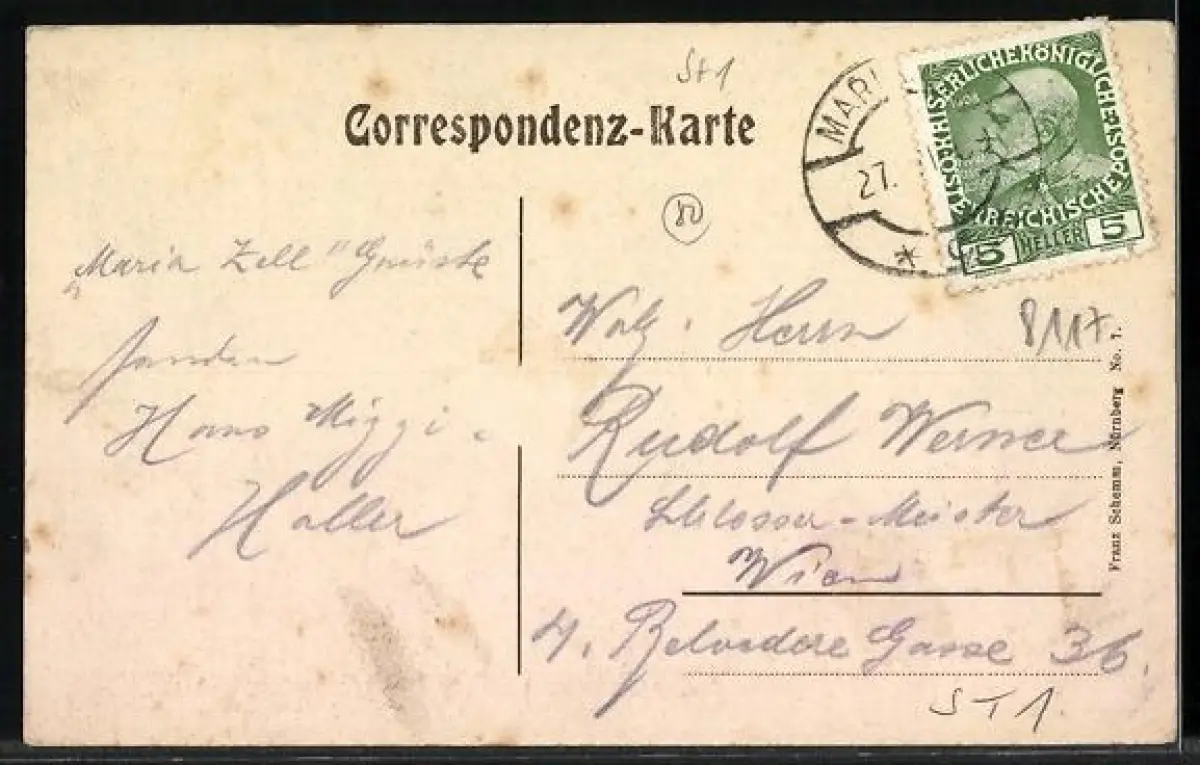 St1
Correspondenz-Karte
MARI
27.
KAISERLICHE KÖNIGLICHE ÖSTERREICHISCHE POST
5 HELLER 5
„Maria Zell" Grüße
senden
Hans Miggi
Haller
Herrn
Rudolf Werner
Schlosser-Meister
Wien
Belvedere Gasse 36.
8117.
ST1
Franz Schemm, Nürnberg No. 1.